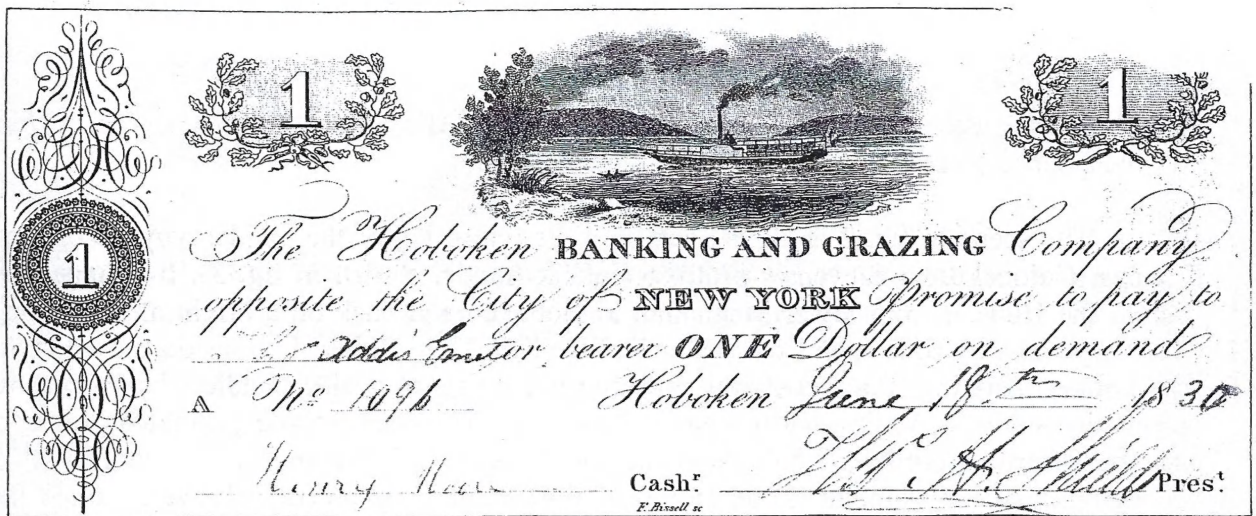 1 1
1
The Hoboken BANKING AND GRAZING Company
opposite the City of NEW YORK Promise to pay to
Addis Emet or bearer ONE Dollar on demand
A No 1096 Hoboken June 18th 1830
Henry Cashr. Wm. H. Pres.t
F. Bissell sc